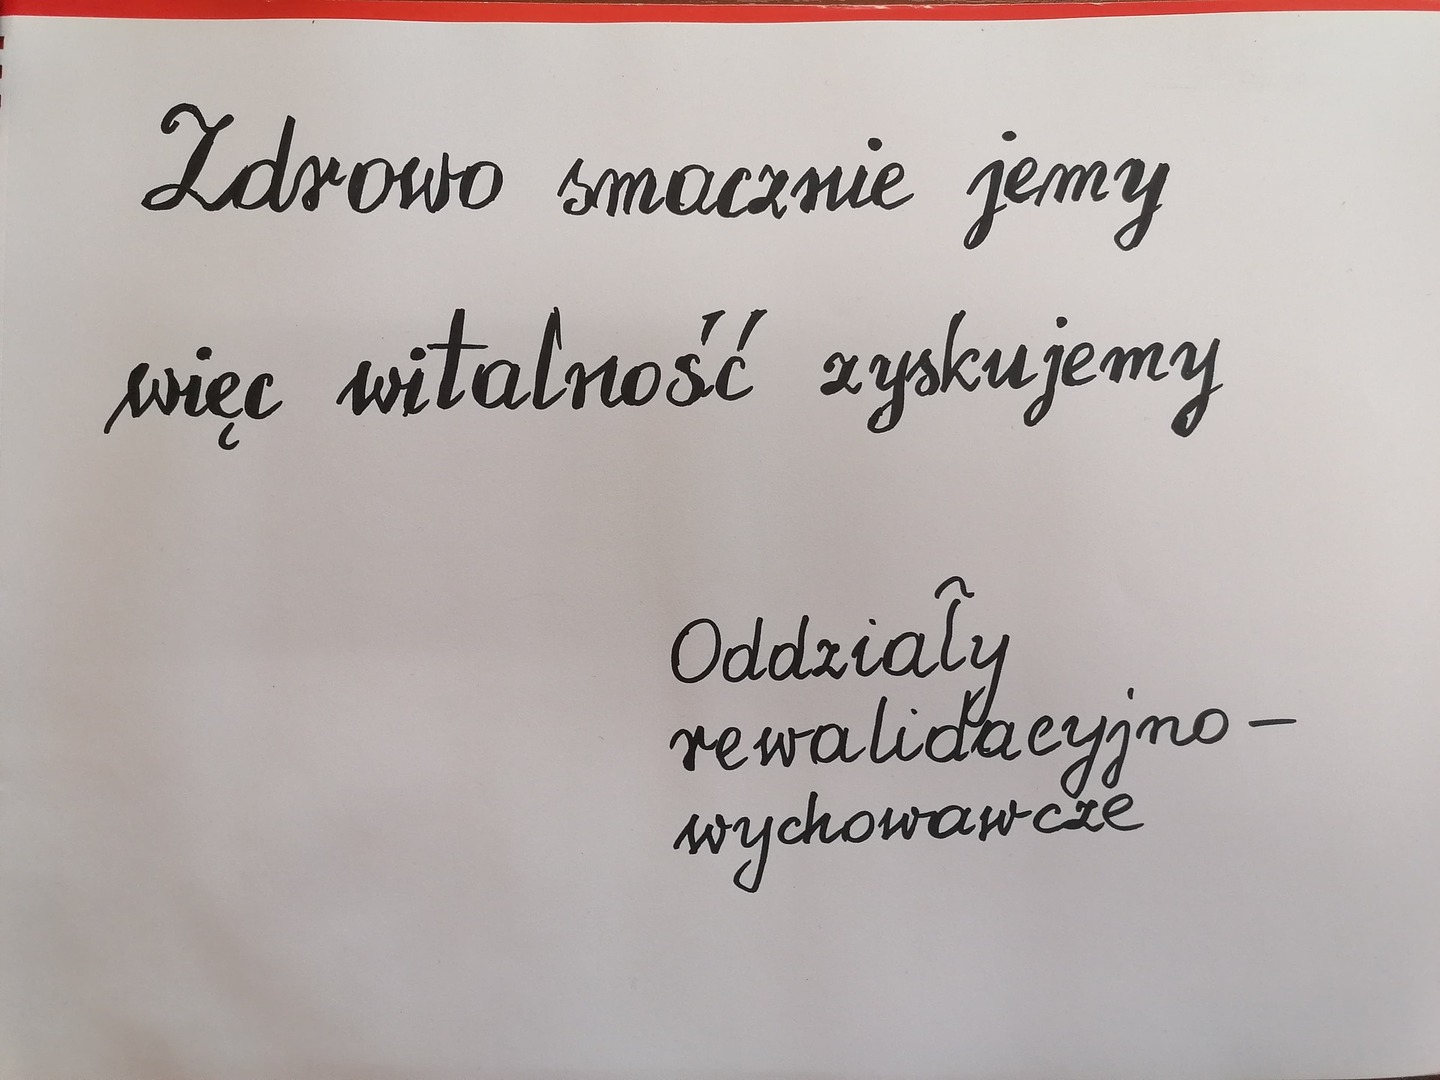 Zdrowo smacznie jemy
więc witalność zyskujemy
Oddziały
rewalidacyjno-
wychowawcze